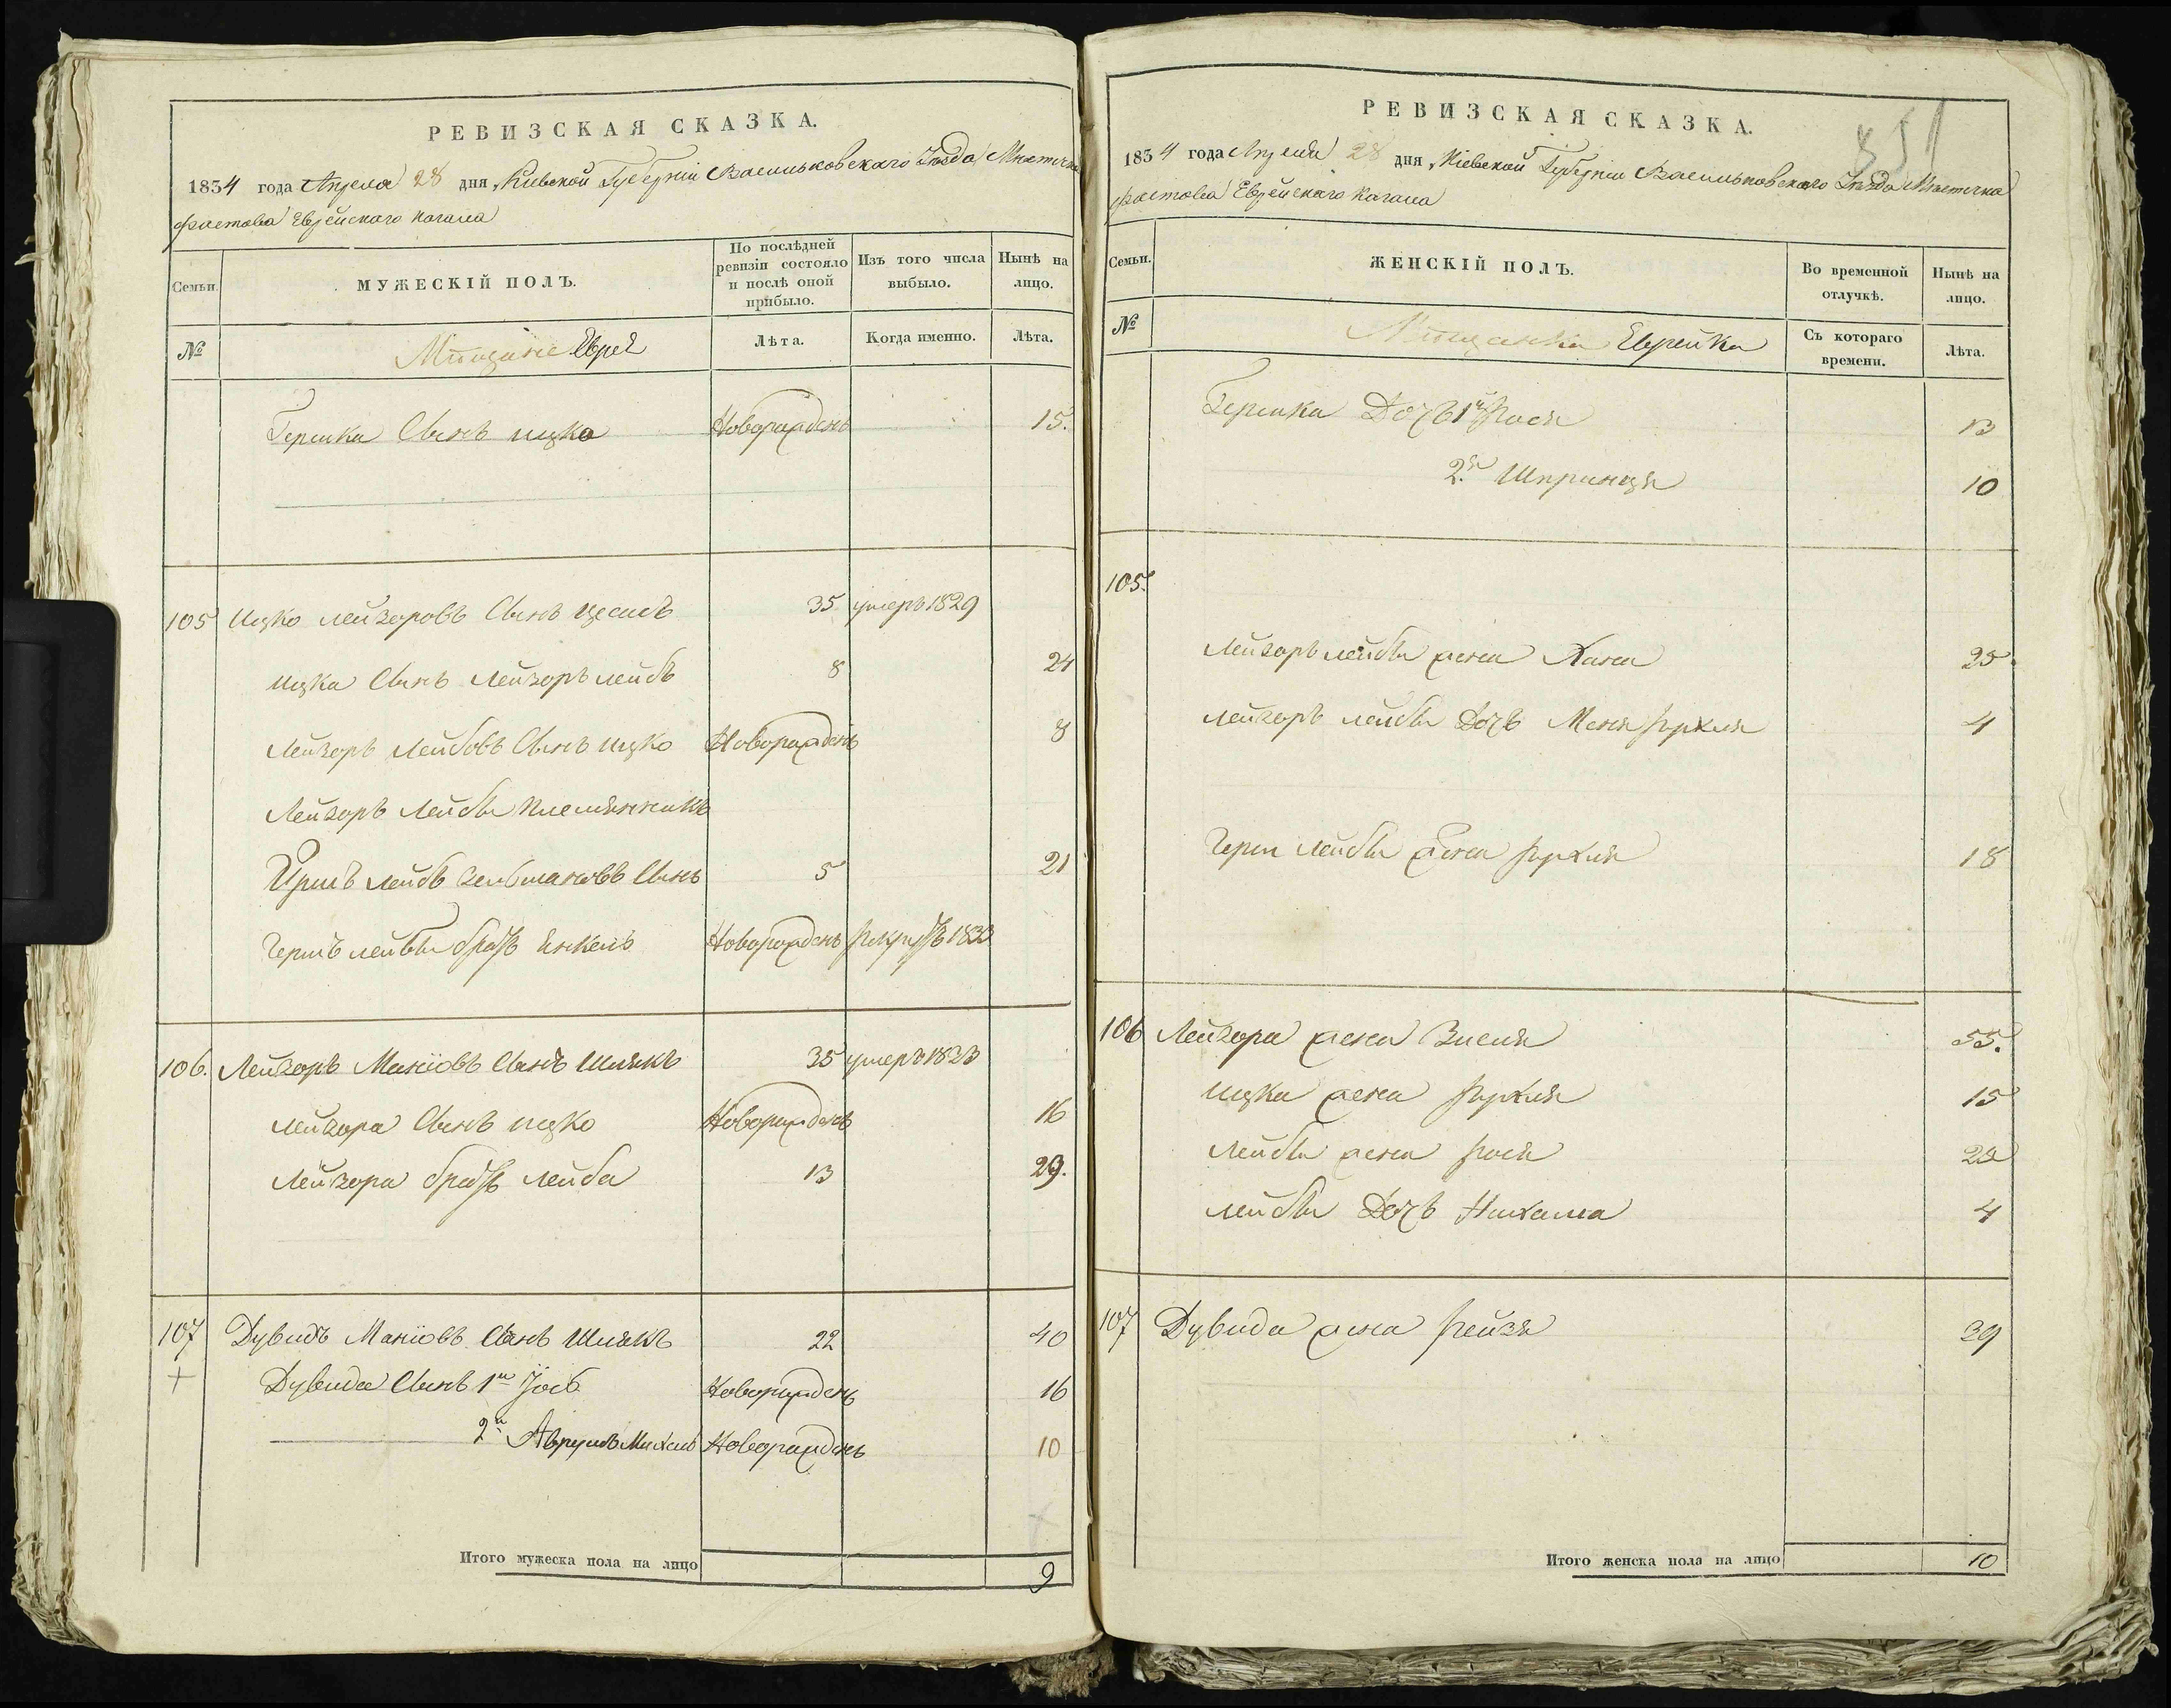 РЕВИЗСКАЯ СКАЗКА.
1834 года Апреля 28 дня, Киевской Губерніи Васильковскаго Уезда Местечка
Фастова Еврейскаго Кагала
Семьи.
МУЖЕСКІЙ ПОЛЪ.
По послѣдней ревизіи состояло и послѣ оной прибыло.
Изъ того числа выбыло.
Нынѣ на лицо.
№
Мѣщане Евреи
Лѣта.
Когда именно.
Лѣта.
Гершка Сынъ Ицко Новорожденъ 15.
105 Ицко Лейзоровъ Сынъ 35 умеръ 1829
Ицка Сынъ Лейзоръ Лейбъ 8 24
Лейзоръ Лейбовъ Сынъ Ицко Новорожденъ 8
Лейзоръ Лейбы Племянникъ
Гершъ Лейбъ Зельмановъ Сынъ 5 21
Гершъ Лейбы братъ Янкель Новорожденъ рекрутъ 1833
106. Лейзоръ Маніовъ Сынъ Шлякъ 35 умеръ 1823
Лейзора Сынъ Ицко Новорожденъ 16
Лейзора братъ Лейба 13 29.
107 Дувидъ Маніовъ Сынъ Шлякъ 22 40
+ Дувида Сынъ 1й Іосъ Новорожденъ 16
2й Аврумъ Михель Новорожденъ 10
Итого мужеска пола на лицо 9
РЕВИЗСКАЯ СКАЗКА.
851
1834 года Апреля 28 дня, Кіевской Губерніи Васильковскаго Уезда Местечка
Фастова Еврейскаго Кагала
Семьи.
ЖЕНСКІЙ ПОЛЪ.
Во временной отлучкѣ.
Нынѣ на лицо.
№
Мѣщанки Еврейки
Съ котораго времени.
Лѣта.
Гершка Дочь 1я Рося 13
2я Шпринця 10
105.
Лейзоръ Лейбы жена Хана 25.
Лейзоръ Лейбы Дочь Меня Рухля 4
Герш Лейбы жена Рухля 18
106 Лейзора жена Висля 55.
Ицка жена Рухля 15
Лейбы жена Рося 28
Лейбы Дочь Нихама 4
107 Дувида жена Рейзя 39
Итого женска пола на лицо 10